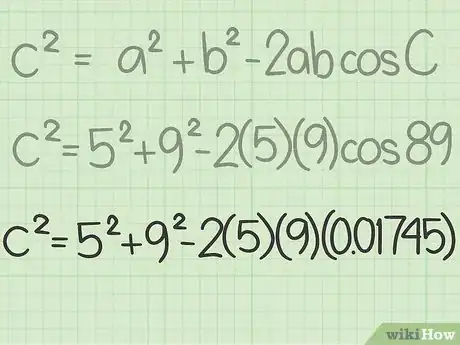 c² = a² + b² - 2ab cos C
c² = 5² + 9² - 2(5)(9) cos 89
c² = 5² + 9² - 2(5)(9)(0.01745)
wikiHow